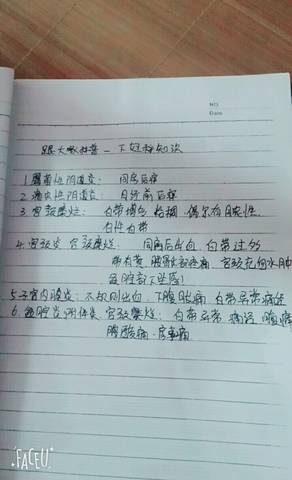 NO.
Date
跟大家科普一下妇科知识
1.霉菌性阴道炎: 同房后痒
2.滴虫性阴道炎: 月牙前后痒
3.宫颈糜烂: 白带增多 粘稠, 偶尔有
白性白带
4.宫颈炎 宫颈糜烂: 同房后出血 白带过多
宫颈充血水肿
盆腔有下坠感!
5.子宫内膜炎: 不规则出血, 下腹胀痛 白带异常 痛经
6.盆腔炎 附件炎 宫颈糜烂: 白带异常 痛经 腹痛
腰酸痛.
FACEU